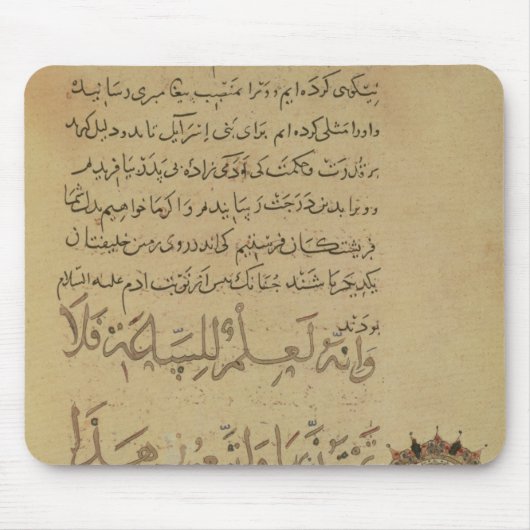 نیکویی کرده ایم و ویرا بمنصب پیغامبری رسانیده
و او را مثلی کرده ایم برای بنی اسرآیل تا بدو دلیل کرند
بر قدرت و حکمت کی آدمی زاده بی پدر بیافریدیم
و ویرا بدین درجت رسانیدیم و اگر ما خواهیم بدل شما
فریشتگان فرستیم کی اندر روی زمین خلیفتان
یکدیگر باشند چنانک پس از نوبت ادم علیه السلام
بودند
وَإِنَّهُ لَعِلْمٌ لِلسَّاعَةِ فَلَا
تَمْتَرُنَّ بِهَا وَاتَّبِعُونِ هَذَا